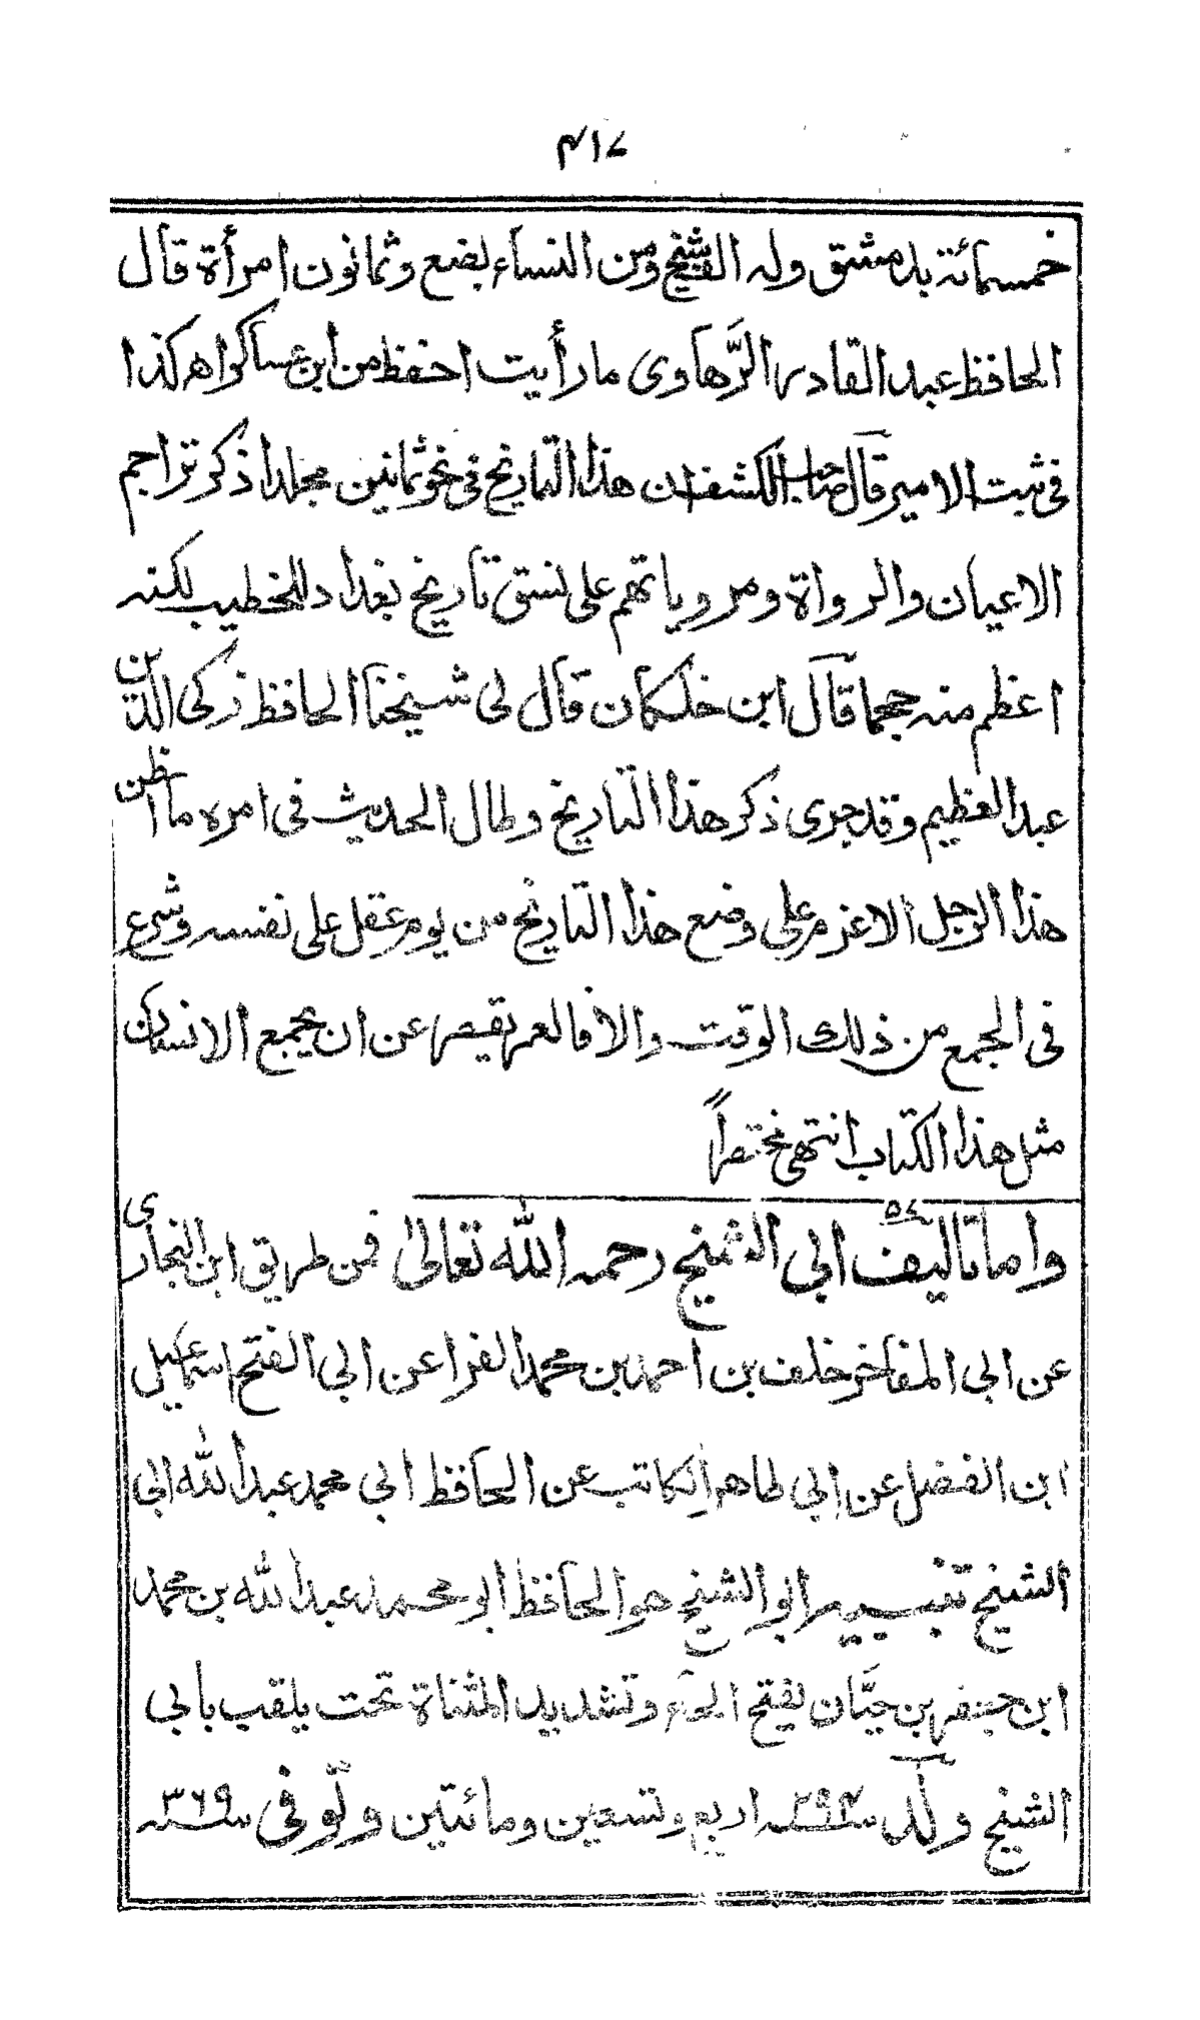 ۴۱۷
خمسمائة بدمشق وله الف شيخ ومن النساء بضع وثمانون امرأة قال
الحافظ عبد القادر الرَّهاوى ما رأيت احفظ من ابن عساكر اھ كذا
فى ثبت الامير قال صاحب الكشف ان هذا التاريخ فى نحو ثمانين مجلدا ذكر تراجم
الاعيان والرواة ومروياتهم على نسق تاريخ بغداد للخطيب لكنه
اعظم منه حجما قال ابن خلكان قال لى شيخنا الحافظ زكى الدين
عبد العظيم وقد جرى ذكر هذا التاريخ وطال الحديث فى امره ما اظن
هذا الرجل الا عزم على وضع هذا التاريخ من يوم عقل على نفسه وشرع
فى الجمع من ذلك الوقت والا فالعمر يقصر عن ان يجمع الانسان
مثل هذا الكتاب انتهى مختصراً
۵۷
واما تاليف ابى الشيخ رحمه الله تعالىٰ فمن طريق ابن البخارى
عن ابى المفاخر خلف بن احمد بن محمد الفرا عن ابى الفتح اسماعيل
ابن الفضل عن ابى طاهر الكاتب عن الحافظ ابى محمد عبد الله ابى
الشيخ تنبيه ابو الشيخ هو الحافظ ابو محمد عبد الله بن محمد
ابن جعفر بن حيَّان بفتح الحاء وتشديد المثناة تحت يلقب بابى
الشيخ ولد سنه ۲۹۴ اربع وتسعين ومائتين وتوفى سنه ۳۶۹